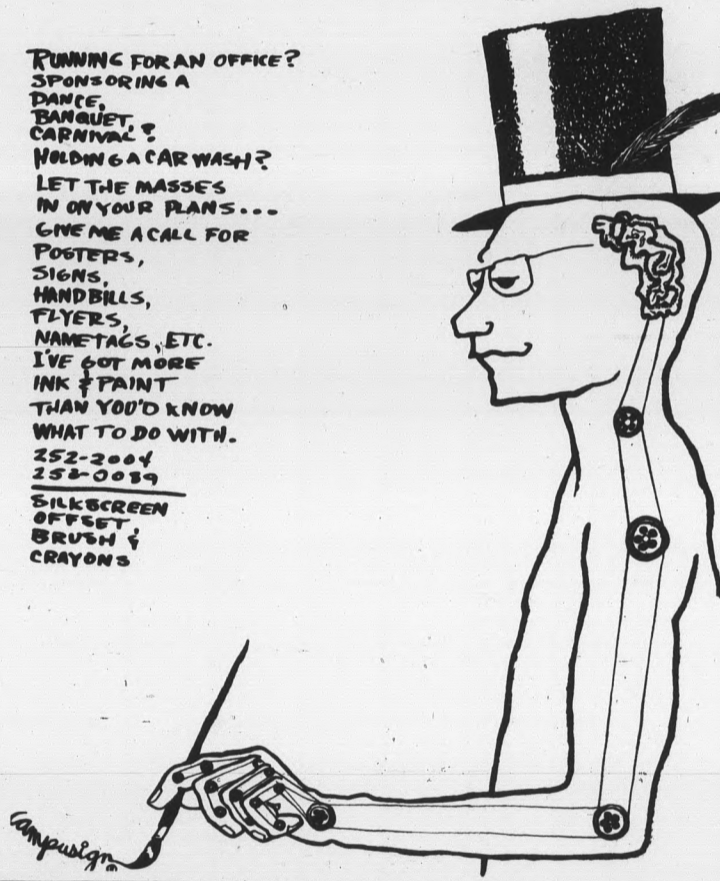 RUNNING FOR AN OFFICE?
SPONSORING A
DANCE,
BANQUET,
CARNIVAL?
HOLDING A CAR WASH?
LET THE MASSES
IN ON YOUR PLANS...
GIVE ME A CALL FOR
POSTERS,
SIGNS,
HANDBILLS,
FLYERS,
NAMETAGS, ETC.
I'VE GOT MORE
INK & PAINT
THAN YOU'D KNOW
WHAT TO DO WITH.
252-2004
253-0089
SILKSCREEN
OFFSET,
BRUSH &
CRAYONS
campusign